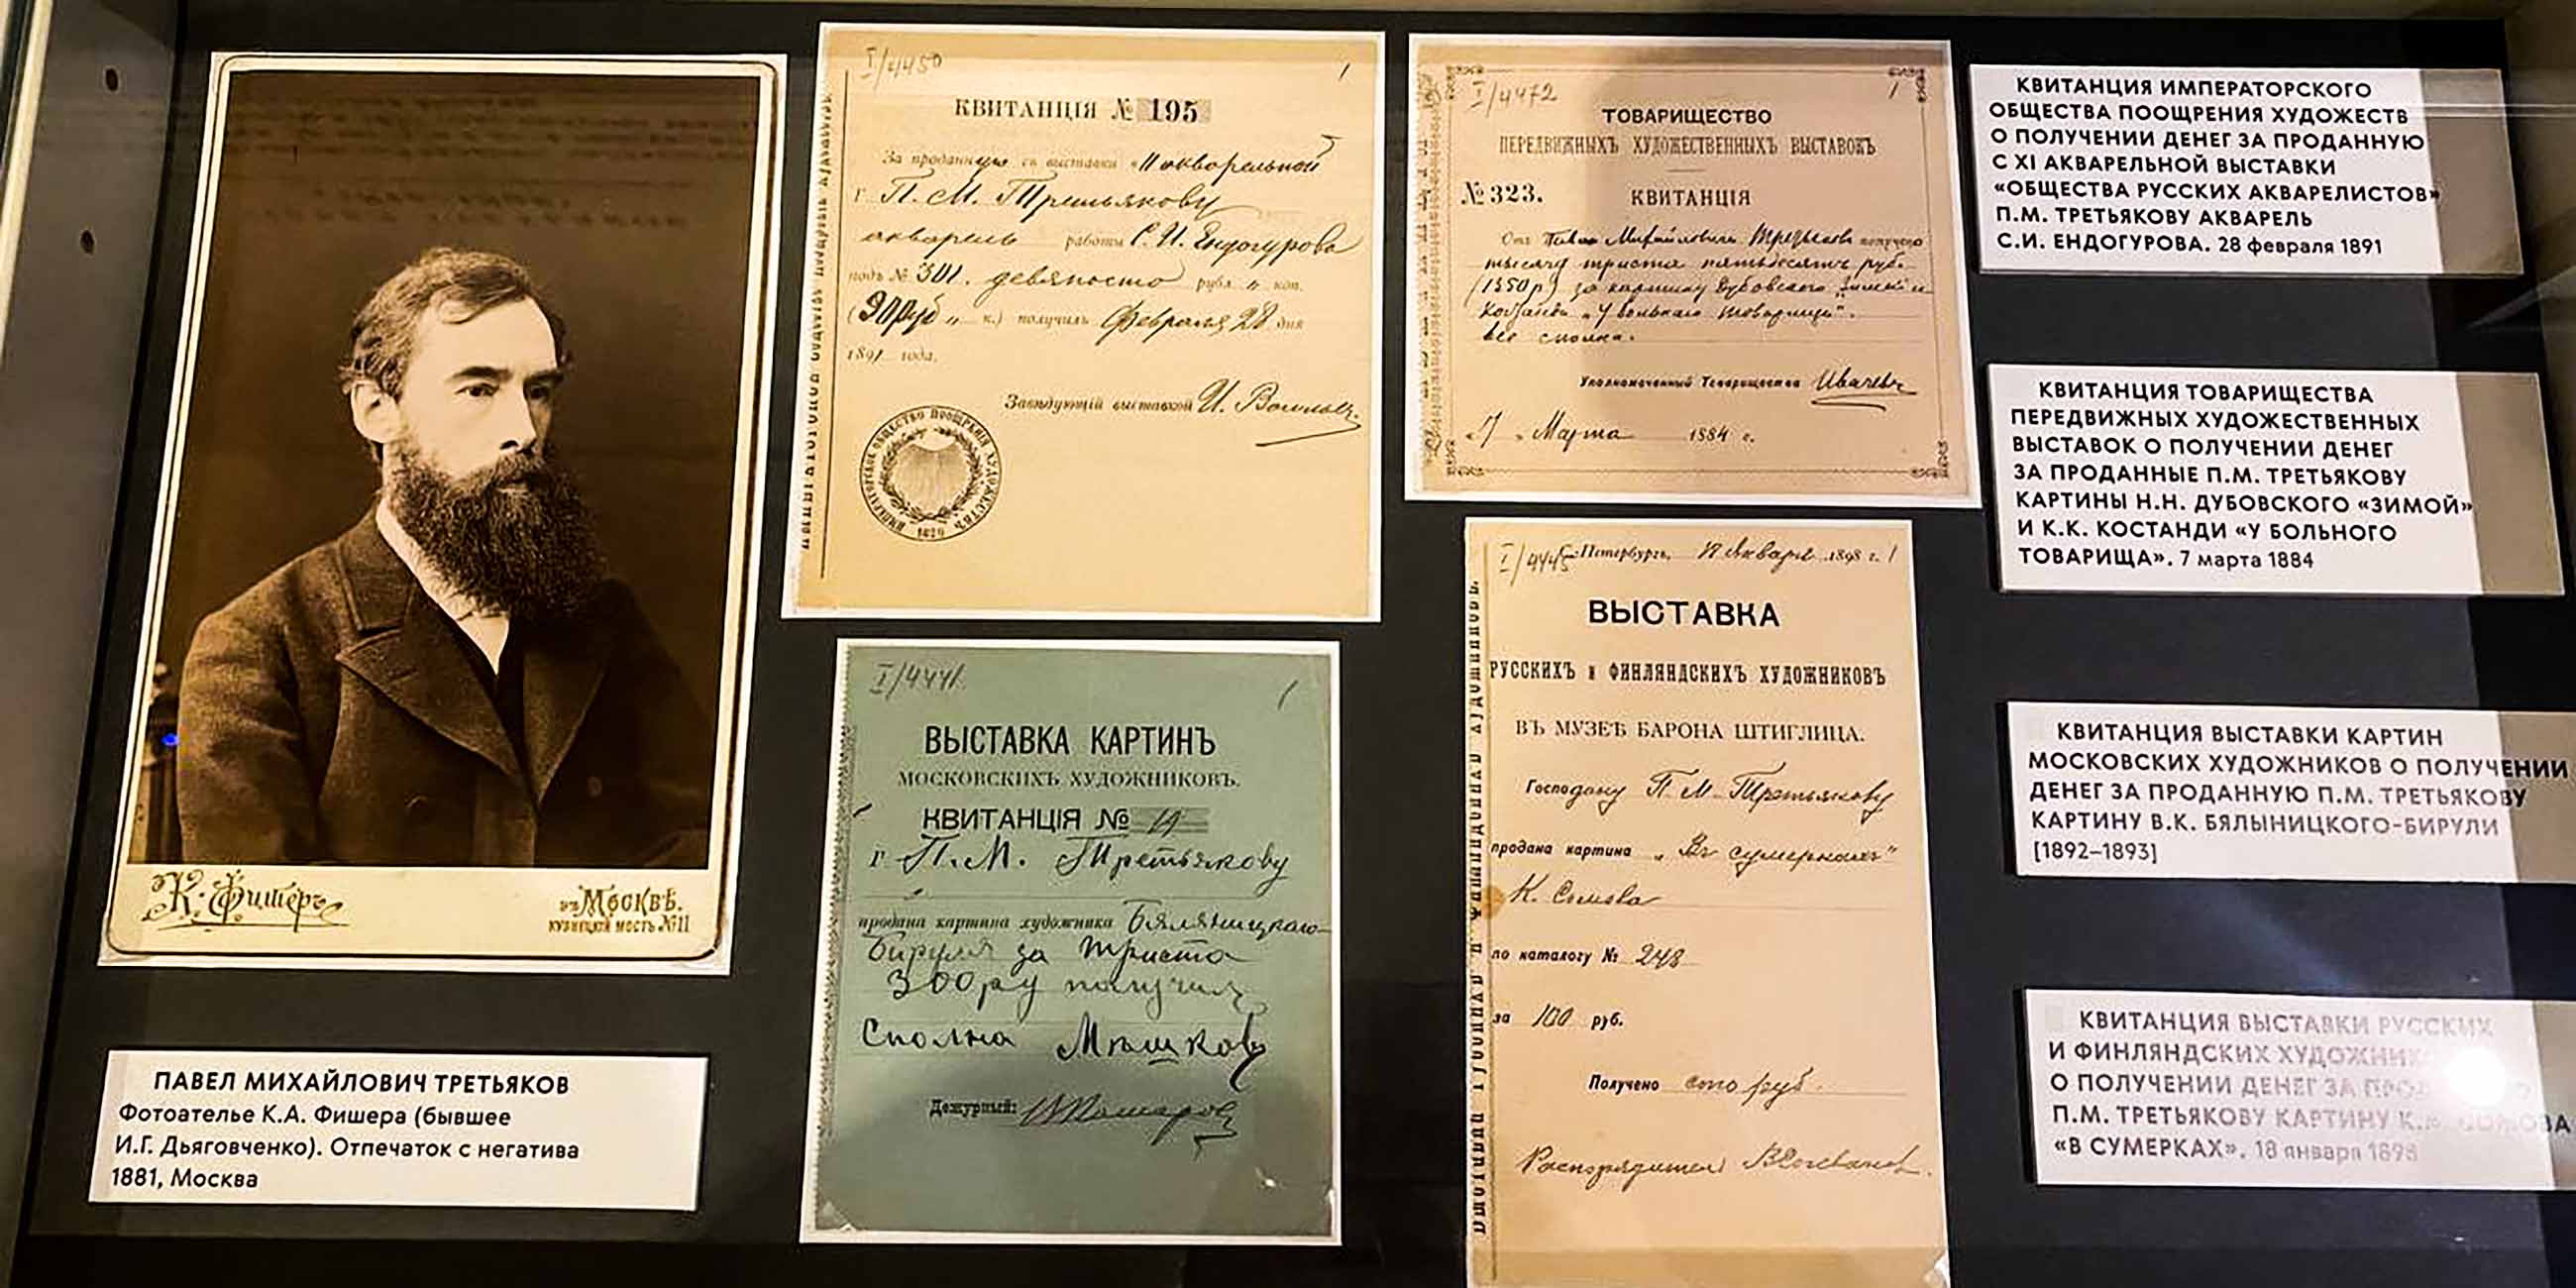 К. Фишеръ
въ Москвѣ.
Кузнецкій мостъ № 11
ПАВЕЛ МИХАЙЛОВИЧ ТРЕТЬЯКОВ
Фотоателье К.А. Фишера (бывшее
И.Г. Дьяговченко). Отпечаток с негатива
1881, Москва
I/4450
1
КВИТАНЦІЯ № 195
За проданную съ выставки акварельной
г. П. М. Третьякову
акварель работы С. И. Ендогурова
подъ № 301. девяносто рубл. " коп.
(90 руб " к.) получилъ Февраля 28 дня
1891 года.
Завѣдующій выставкой И.
ИМПЕРАТОРСКОЕ ОБЩЕСТВО ПООЩРЕНІЯ ХУДОЖЕСТВЪ
I/4441
1
ВЫСТАВКА КАРТИНЪ
МОСКОВСКИХЪ ХУДОЖНИКОВЪ.
КВИТАНЦІЯ №
г П. М. Третьякову
продана картина художника Бялыницкаго-
Бируля за триста
300 ру получилъ
Сполна Мѣшковъ
Дежурный:
I/4472
1
ТОВАРИЩЕСТВО
ПЕРЕДВИЖНЫХЪ ХУДОЖЕСТВЕННЫХЪ ВЫСТАВОКЪ
№ 323. КВИТАНЦІЯ
Отъ Павла Михайловича Третьякова получено
тысячу триста пятьдесятъ руб.
(1350 р) за картины Дубовского "Зимой" и
Костанди "У больнаго товарища".
все сполна.
Уполномоченный Товарищества
"7" Марта 1884 г.
I/4445
С.-Петербургъ, 18 Января 1898 г. 1
ВЫСТАВКА
РУССКИХЪ и ФИНЛЯНДСКИХЪ ХУДОЖНИКОВЪ
ВЪ МУЗЕѢ БАРОНА ШТИГЛИЦА.
Господину П. М. Третьякову
продана картина „Въ сумеркахъ"
К. Сомова
по каталогу № 248
за 100 руб.
Получено сто руб.
Распорядитель
КВИТАНЦИЯ ИМПЕРАТОРСКОГО
ОБЩЕСТВА ПООЩРЕНИЯ ХУДОЖЕСТВ
О ПОЛУЧЕНИИ ДЕНЕГ ЗА ПРОДАННУЮ
С XI АКВАРЕЛЬНОЙ ВЫСТАВКИ
«ОБЩЕСТВА РУССКИХ АКВАРЕЛИСТОВ»
П.М. ТРЕТЬЯКОВУ АКВАРЕЛЬ
С.И. ЕНДОГУРОВА. 28 февраля 1891
КВИТАНЦИЯ ТОВАРИЩЕСТВА
ПЕРЕДВИЖНЫХ ХУДОЖЕСТВЕННЫХ
ВЫСТАВОК О ПОЛУЧЕНИИ ДЕНЕГ
ЗА ПРОДАННЫЕ П.М. ТРЕТЬЯКОВУ
КАРТИНЫ Н.Н. ДУБОВСКОГО «ЗИМОЙ»
И К.К. КОСТАНДИ «У БОЛЬНОГО
ТОВАРИЩА». 7 марта 1884
КВИТАНЦИЯ ВЫСТАВКИ КАРТИН
МОСКОВСКИХ ХУДОЖНИКОВ О ПОЛУЧЕНИИ
ДЕНЕГ ЗА ПРОДАННУЮ П.М. ТРЕТЬЯКОВУ
КАРТИНУ В.К. БЯЛЫНИЦКОГО-БИРУЛИ
[1892–1893]
КВИТАНЦИЯ ВЫСТАВКИ РУССКИХ
И ФИНЛЯНДСКИХ
О ПОЛУЧЕНИИ ДЕНЕГ ЗА
П.М. ТРЕТЬЯКОВУ КАРТИНУ
«В СУМЕРКАХ». 18 января 1898